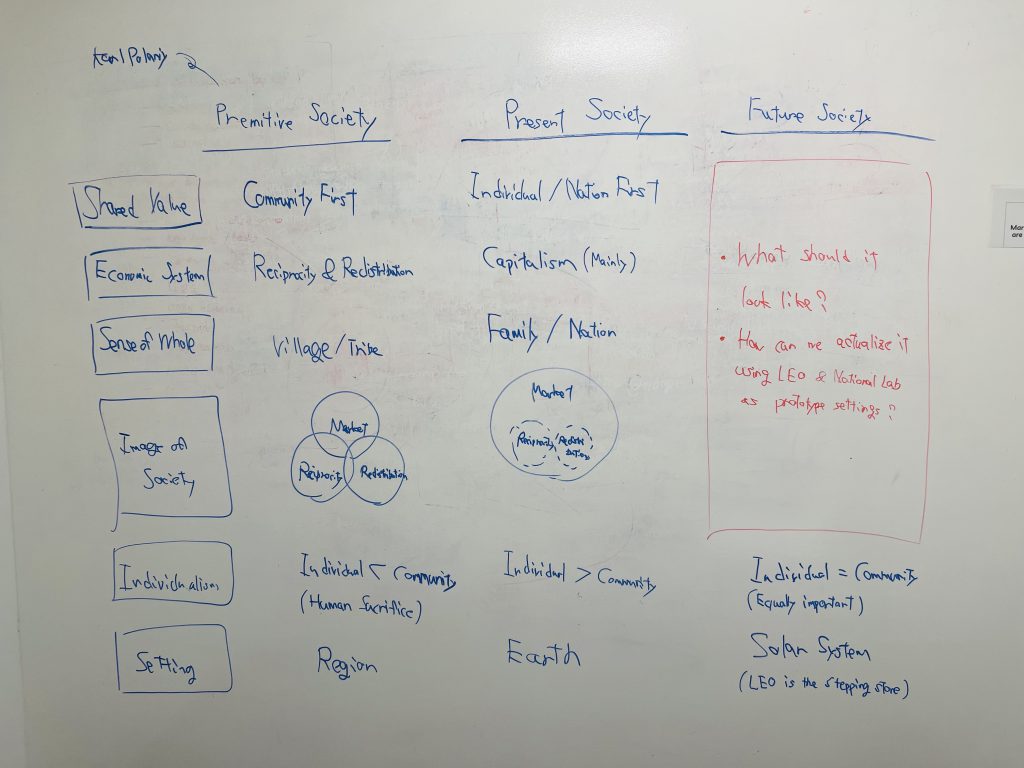 Karl Polaniy
Premitive Society
Present Society
Future Society
Shared Value
Community First
Individual / Nation First
Economic System
Reciprocity & Redistribution
Capitalism (Mainly)
Sense of Whole
Village / Tribe
Family / Nation
Image of
Society
Market
Reciprocity
Redistribution
Market
Reciprocity
Redistri
bution
• What should it
look like?
• How can we actualize it
using LEO & National Lab
as prototype settings?
Individualism
Individual < Community
(Human Sacrifice)
Individual > Community
Individual = Community
(Equally important)
Setting
Region
Earth
Solar System
(LEO is the stepping stone)
Mar
are